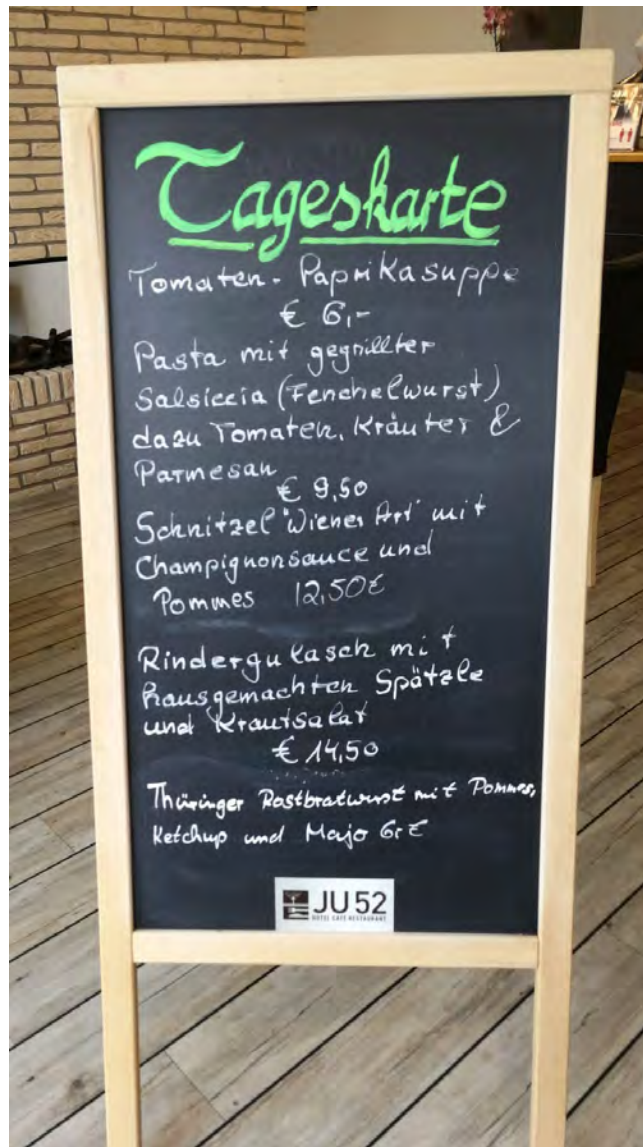 Tageskarte
Tomaten- Paprikasuppe
€ 6,-
Pasta mit gegrillter
Salsiccia (Fenchelwurst)
dazu Tomaten, Kräuter &
Parmesan
€ 9,50
Schnitzel "Wiener Art" mit
Champignonsauce und
Pommes 12,50€
Rindergulasch mit
hausgemachten Spätzle
und Krautsalat
€ 14,50
Thüringer Rostbratwurst mit Pommes,
Ketchup und Majo 6,- €
JU 52
HOTEL CAFÉ RESTAURANT